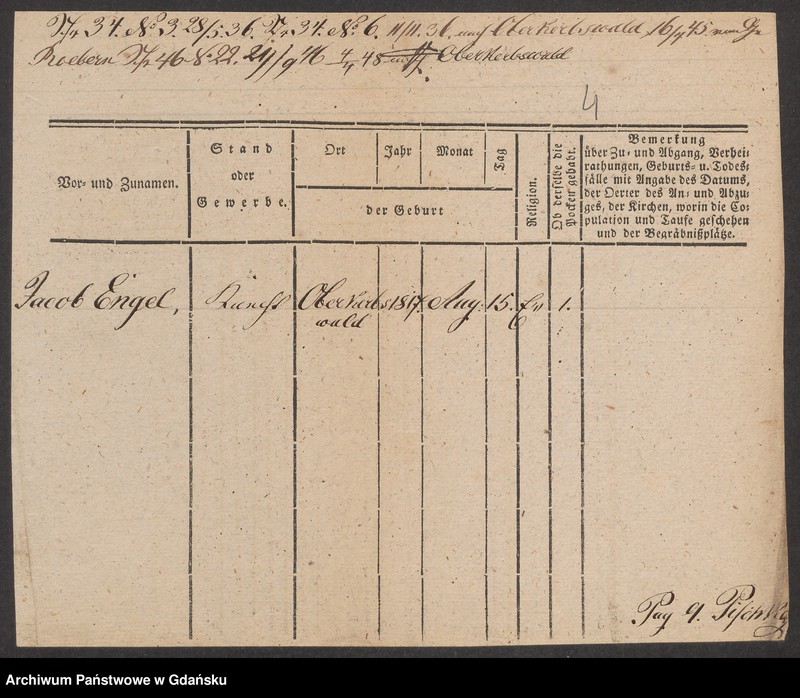 Nr 34. No 3. 28/5. 36. Nr 34. No 6. 11/11. 36. nach Oberkerbswald 16/4 45 von
Roebern Nr 46 No 22. 24/9 46 4/4 48 Oberkerbswald
4
Vor- und Zunamen.
Stand
oder
Gewerbe.
Ort
Jahr
Monat
Tag
der Geburt
Religion.
Ob derselbe die
Pocken gehabt.
Bemerkung
über Zu- und Abgang, Verhei-
rathungen, Geburts- u. Todes-
fälle mit Angabe des Datums,
der Oerter des An- und Abzu-
ges, der Kirchen, worin die Co-
pulation und Taufe geschehen
und der Begräbnißplätze.
Jacob Engel, Knecht Oberkerbs 1817. Aug: 15. Ev 1.
wald
Pag 9.
Archiwum Państwowe w Gdańsku